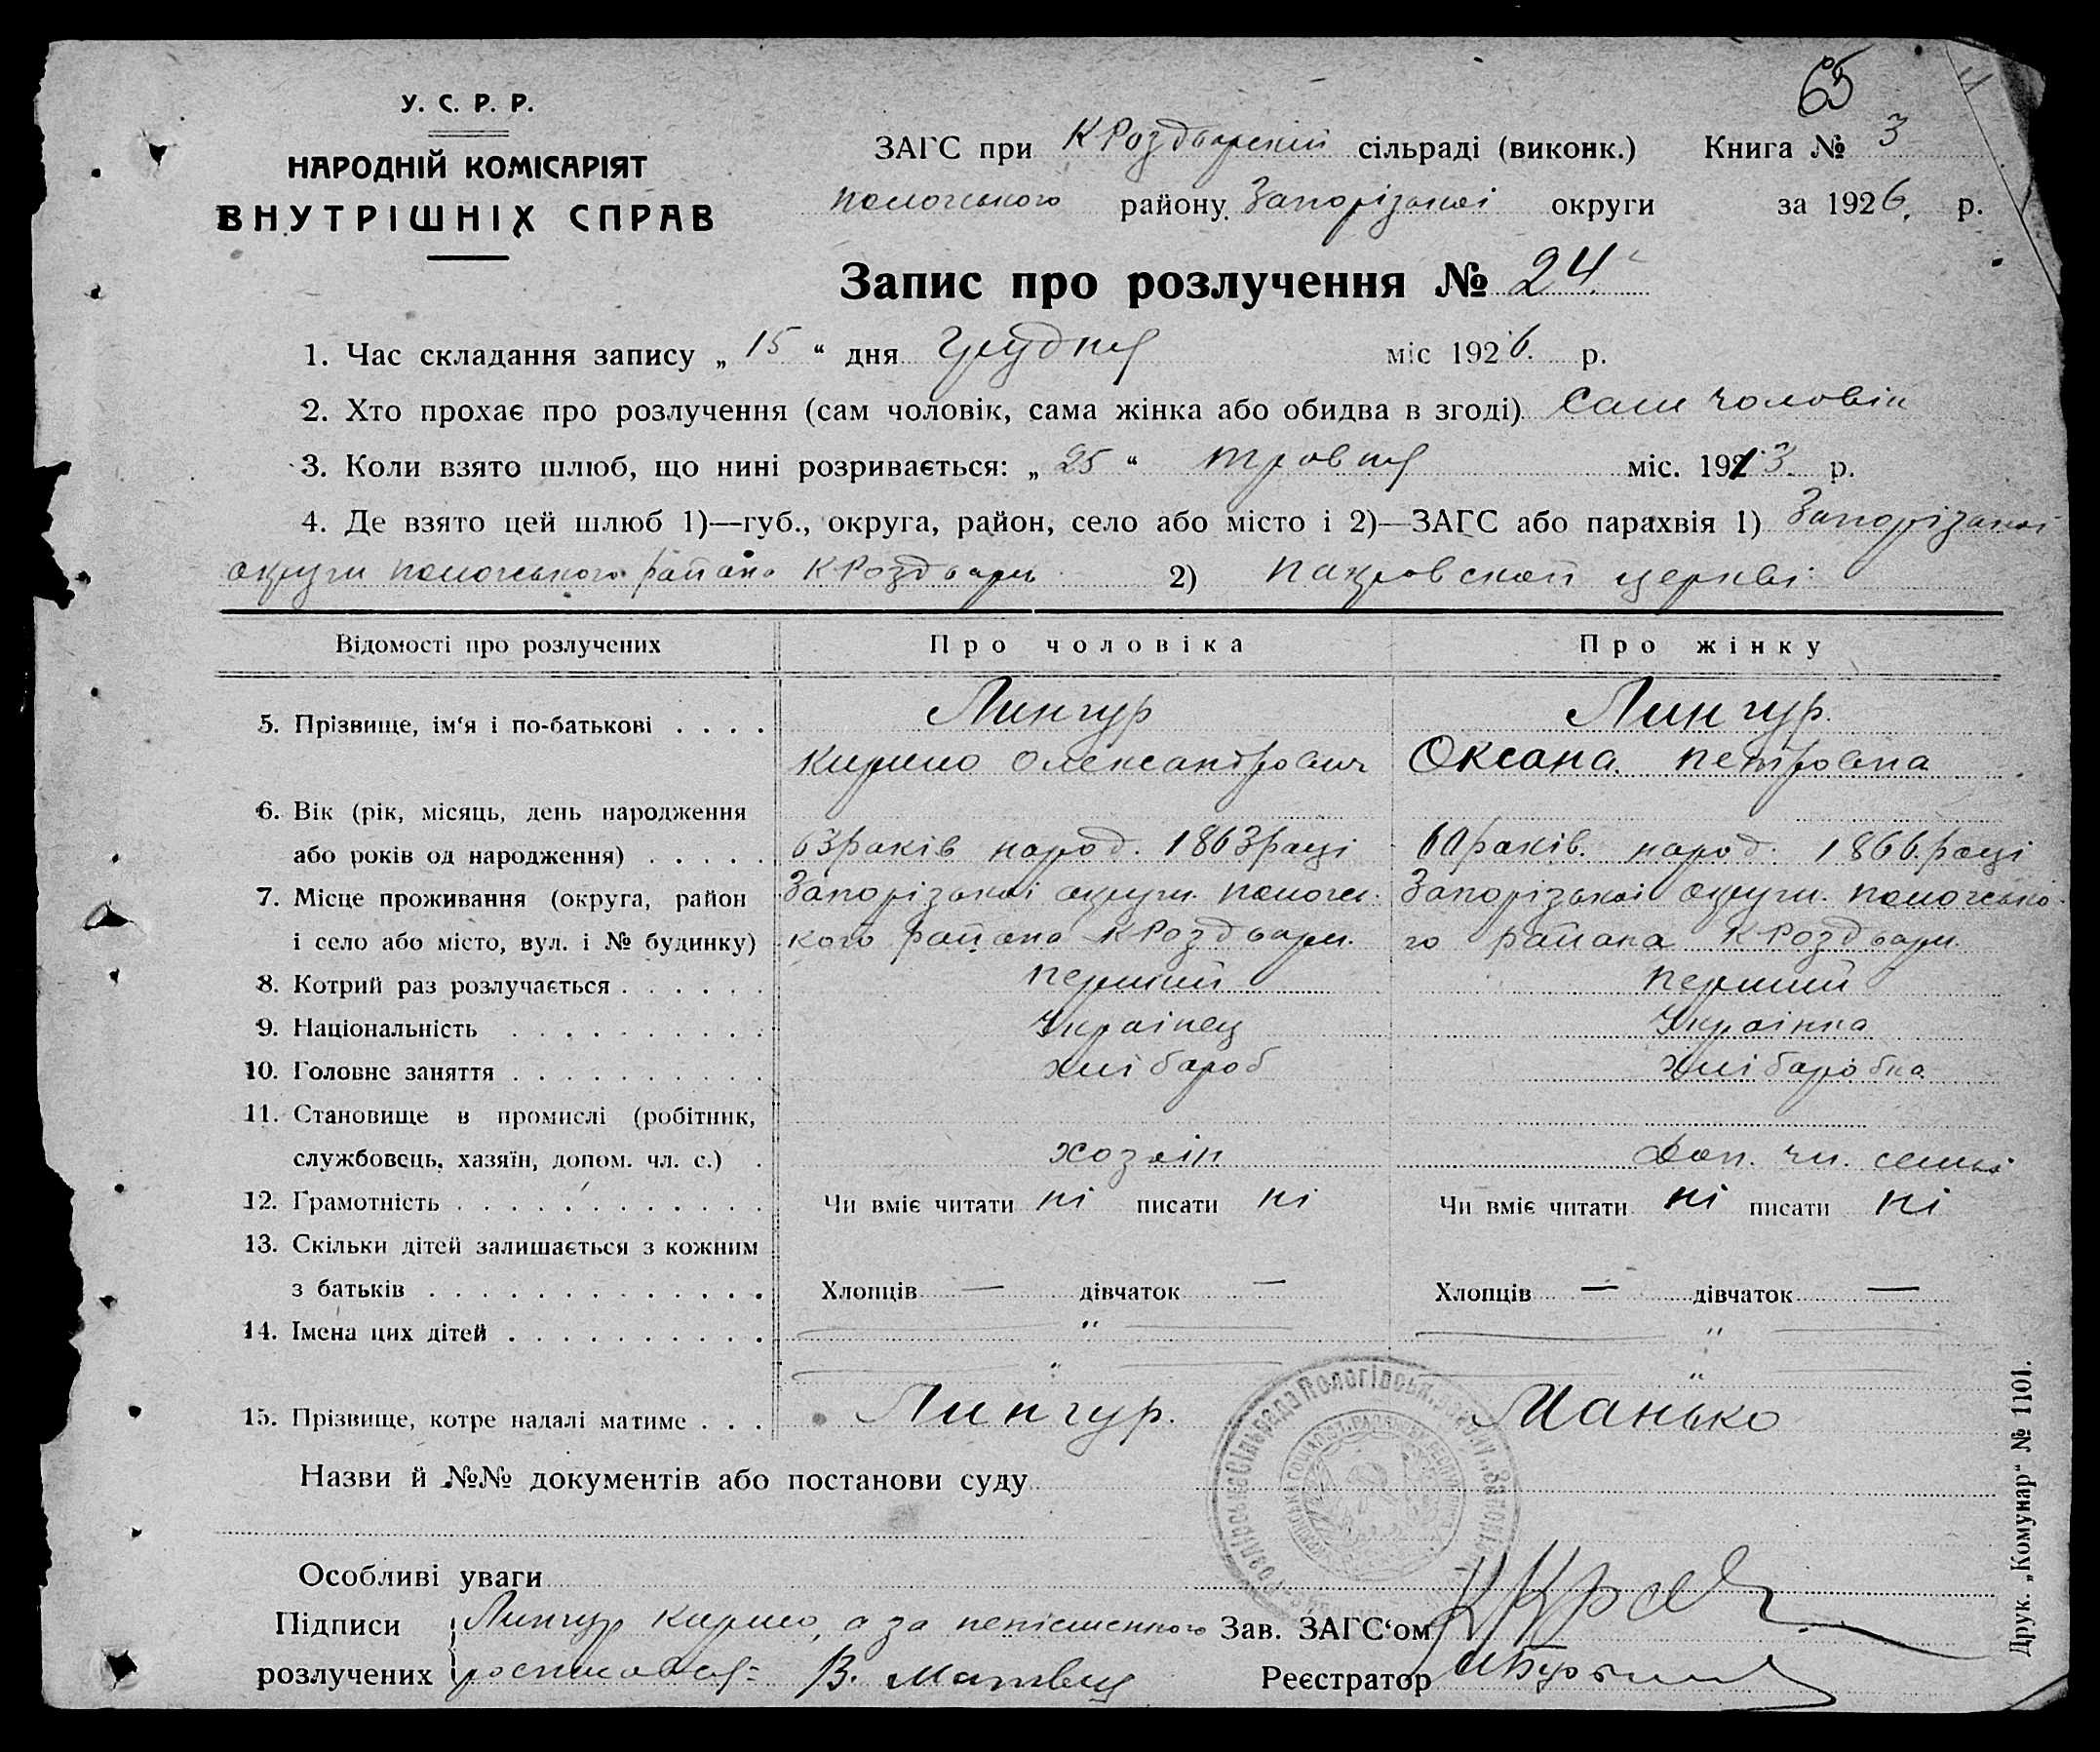 65
У. С. Р. Р.
НАРОДНІЙ КОМІСАРІЯТ
ВНУТРІШНІХ СПРАВ
ЗАГС при КРоздорский сільраді (виконк.) Книга № 3
пологського району Запорізькоі округи за 1926. р.
Запис про розлучення № 24
1. Час складання запису „ 15 “ дня Грудня міс 1926. р.
2. Хто прохає про розлучення (сам чоловік, сама жінка або обидва в згоді) Сам чоловік
3. Коли взято шлюб, що нині розривається: „ 25 “ травня міс. 1913. р.
4. Де взято цей шлюб 1)—губ., округа, район, село або місто і 2)—ЗАГС або парахвія 1) Запорізькоі
округи пологського района КРоздоры 2) пакровской церкві
Відомості про розлучених Про чоловіка Про жінку
5. Прізвище, ім‘я і по-батькові . . . . Лингур Лингур.
Кирило Олександрович Оксана петровна
6. Вік (рік, місяць, день народження
або років од народження) . . . . . 63 років народ. 1863 році 60 років. народ. 1866 році
7. Місце проживання (округа, район Запорізькоі округи. пологсь- Запорізькоі округи. пологсько-
і село або місто, вул. і № будинку) кого района КРоздоры. го района КРоздоры.
8. Котрий раз розлучається . . . . . . перший перший
9. Національність . . . . . . . . . Украінец Украінка
10. Головне заняття . . . . . . . . . . хлібароб хлібаробка
11. Становище в промислі (робітник,
службовець, хазяїн, допом. чл. с.) . хозяін Доп. чл. семьі
12. Грамотність . . . . . . . . . . . . Чи вміє читати ні писати ні Чи вміє читати ні писати ні
13. Скільки дітей залишається з кожним
з батьків . . . . . . . . . . . . . Хлопців — дівчаток — Хлопців — дівчаток —
14. Імена цих дітей . . . . . . . . . . — " — — " —
— " — — " —
15. Прізвище, котре надалі матиме . . . Лингур. Манько
Назви й №№ документів або постанови суду
Особливі уваги
Підписи Лингур Кирило, а за непісменного Зав. ЗАГС‘ом
розлучених росписався: В. Матвец Реєстратор
Друк. „Комунар“ № 1101.